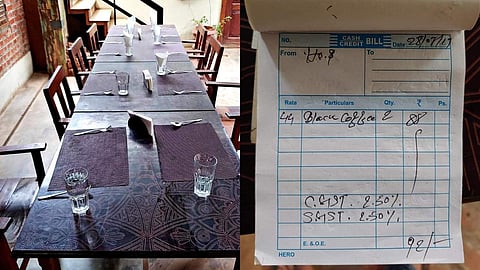 NO. CASH CREDIT BILL Date 28/07/19
From To
No. 8
Rate Particulars Qty. ₹ Ps.
44 Black Coffee 2 88
CGST. 2.50%.
SGST. 2.50%.
E. & O.E. 92/-
HERO